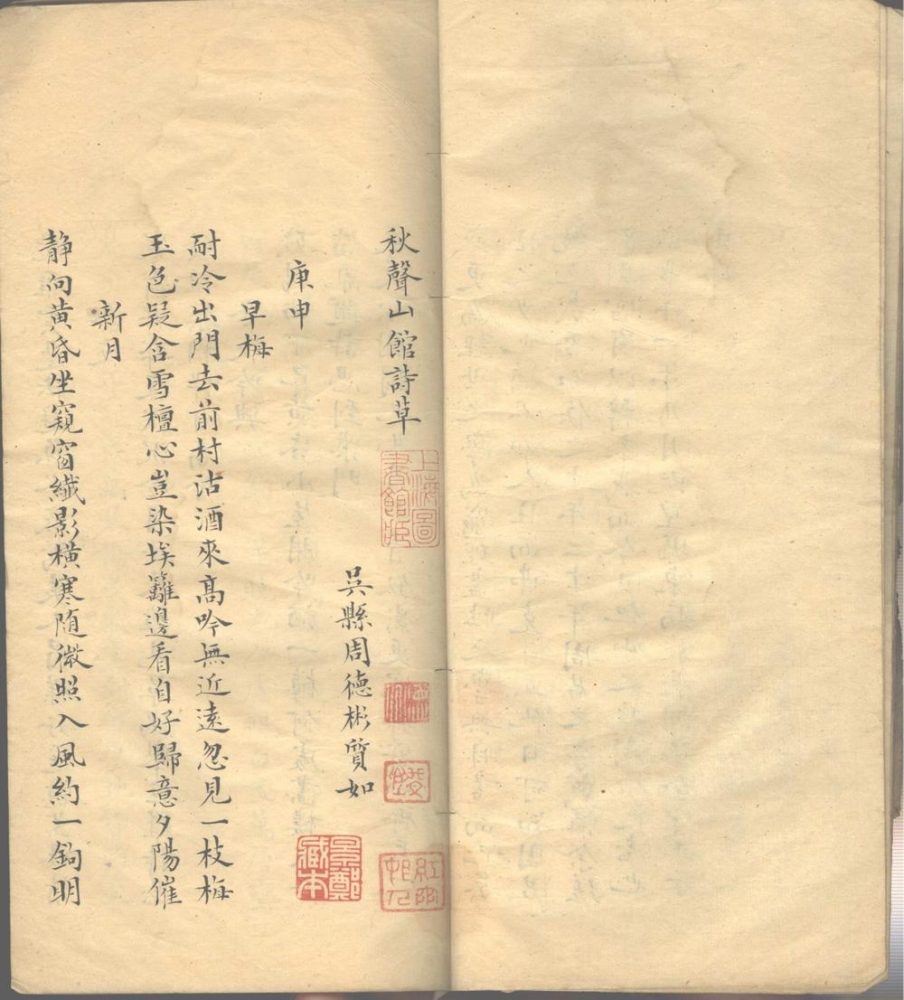 秋聲山館詩草
上海圖書館藏
吳縣周德彬質如
景鄭藏本
庚申
早梅
耐冷出門去前村沽酒來高吟無近遠忽見一枝梅
玉色疑含雪檀心豈染埃籬邊看自好歸意夕陽催
新月
静向黄昏坐窺窗纖影橫寒随微照入風約一鉤明